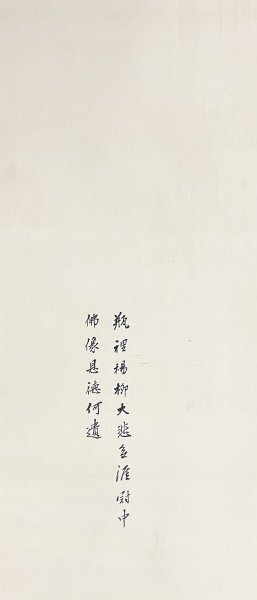 瓶裡楊柳大悲無涯對中
佛像是誰何遺